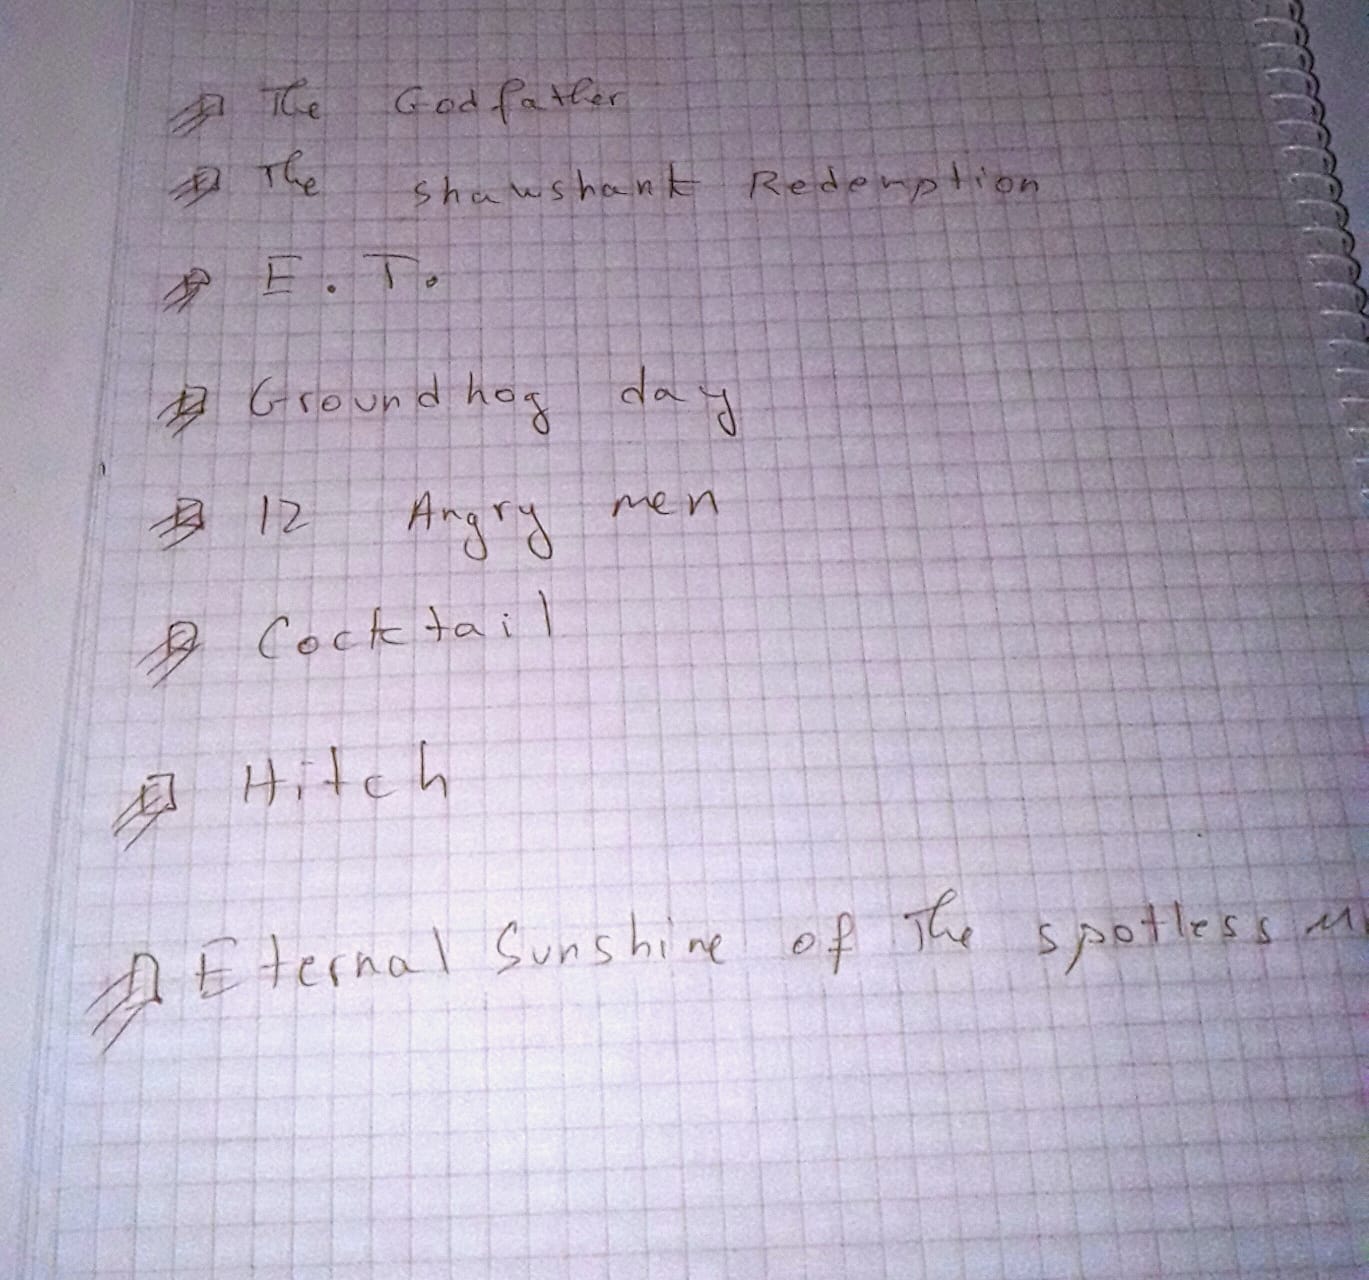 The Godfather
The shawshank Redemption
E.T.
Groundhog day
12 Angry men
Cocktail
Hitch
Eternal Sunshine of The spotless